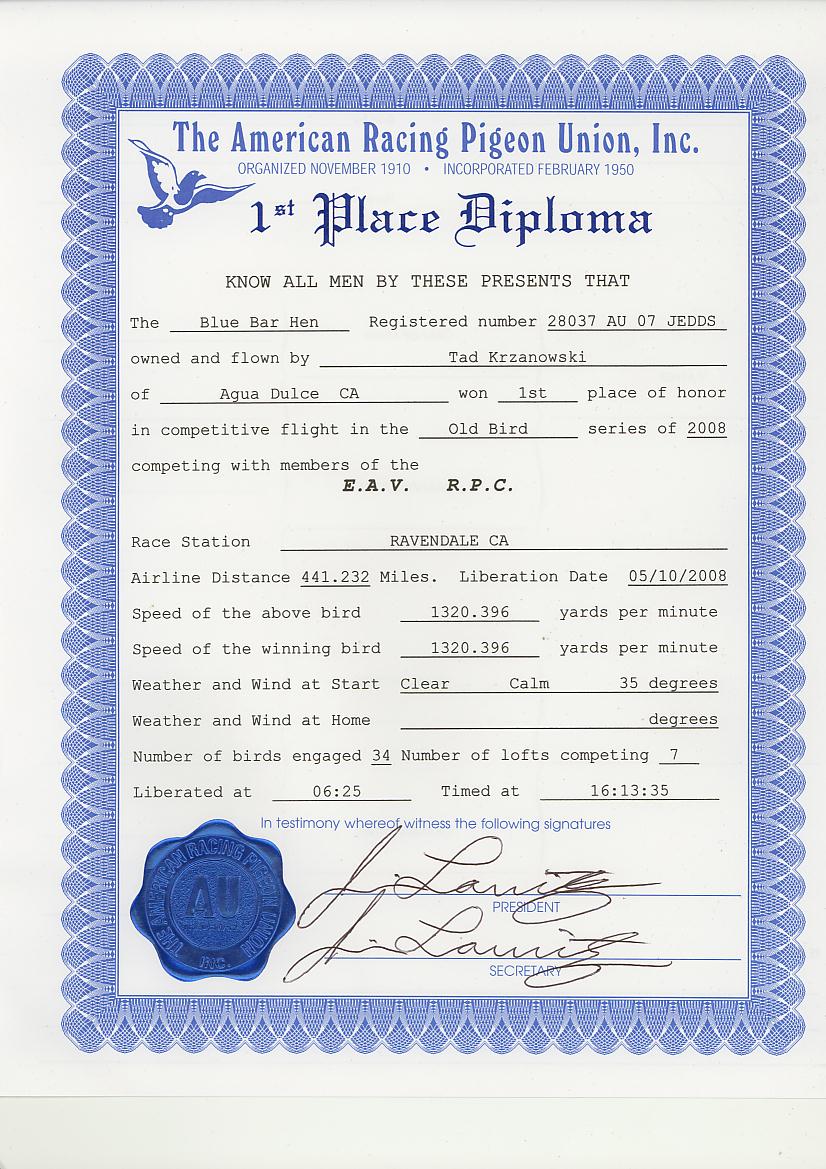 The American Racing Pigeon Union, Inc.
ORGANIZED NOVEMBER 1910 • INCORPORATED FEBRUARY 1950
1st Place Diploma
KNOW ALL MEN BY THESE PRESENTS THAT
The Blue Bar Hen Registered number 28037 AU 07 JEDDS
owned and flown by Tad Krzanowski
of Agua Dulce CA won 1st place of honor
in competitive flight in the Old Bird series of 2008
competing with members of the
E.A.V. R.P.C.
Race Station RAVENDALE CA
Airline Distance 441.232 Miles. Liberation Date 05/10/2008
Speed of the above bird 1320.396 yards per minute
Speed of the winning bird 1320.396 yards per minute
Weather and Wind at Start Clear Calm 35 degrees
Weather and Wind at Home degrees
Number of birds engaged 34 Number of lofts competing 7
Liberated at 06:25 Timed at 16:13:35
In testimony whereof witness the following signatures
PRESIDENT
SECRETARY
THE AMERICAN RACING PIGEON UNION
AU
INC.